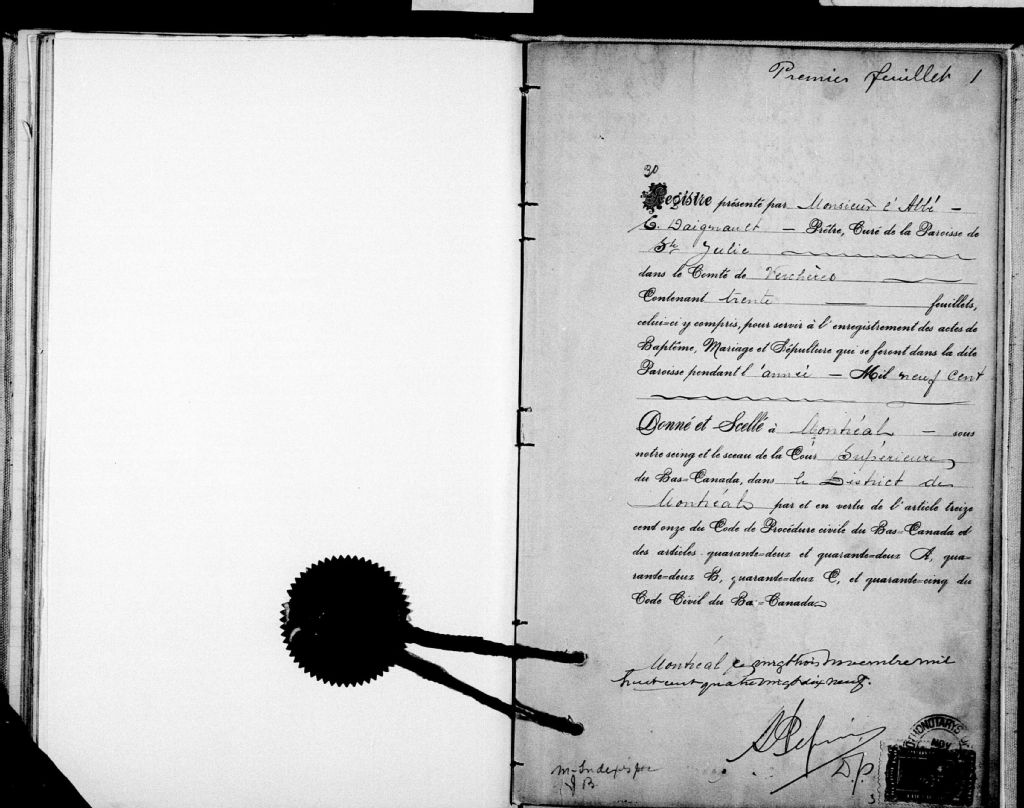 Premier feuillet 1
30
Registre présenté par Monsieur l'Abbé –
C. Daignault – Prêtre, Curé de la Paroisse de
Ste Julie
dans le Comté de Verchères
Contenant trente — feuillets,
celui=ci y compris, pour servir à l'enregistrement des actes de
Baptême, Mariage et Sépulture qui se feront dans la dite
Paroisse pendant l'année – Mil neuf cent
Donné et Scellé à Montréal – sous
notre seing et le sceau de la Cour Supérieure
du Bas=Canada, dans le District de
Montréal par et en vertu de l'article treize
cent onze du Code de Procédure civile du Bas=Canada et
des articles quarante=deux et quarante=deux A, qua-
rante=deux B, quarante=deux C, et quarante=cinq du
Code Civil du Ba=Canada
Montréal ce vingt trois novembre mil
huit cent quatre vingt dix neuf.
D.P.
PROTHONOTARYS
NOV